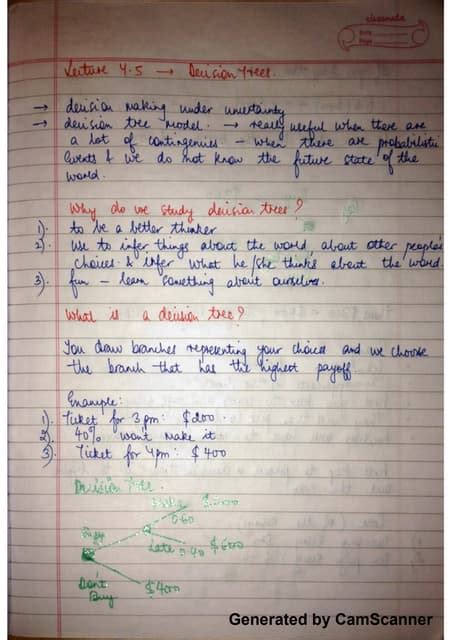 classmate
Date
Page
Lecture 4.5 → Decision Trees.
→ decision making under uncertainty
→ decision tree model. → really useful when there are
a lot of contingencies - when there are probabilistic
events & we do not know the future state of the
world.
Why do we study decision trees?
1). to be a better thinker
2). use to infer things about the world, about other people's
choices & infer what he/she thinks about the world
3). fun - learn something about ourselves.
What is a decision tree?
You draw branches representing your choices and we choose
the branch that has the highest payoff
Example:
1). Ticket for 3 pm: $200.
2). 40% won't make it
3). Ticket for 4pm: $400
Decision Tree.
0.60
Buy
Late 0.40 $600
Don't $400
Buy
Generated by CamScanner